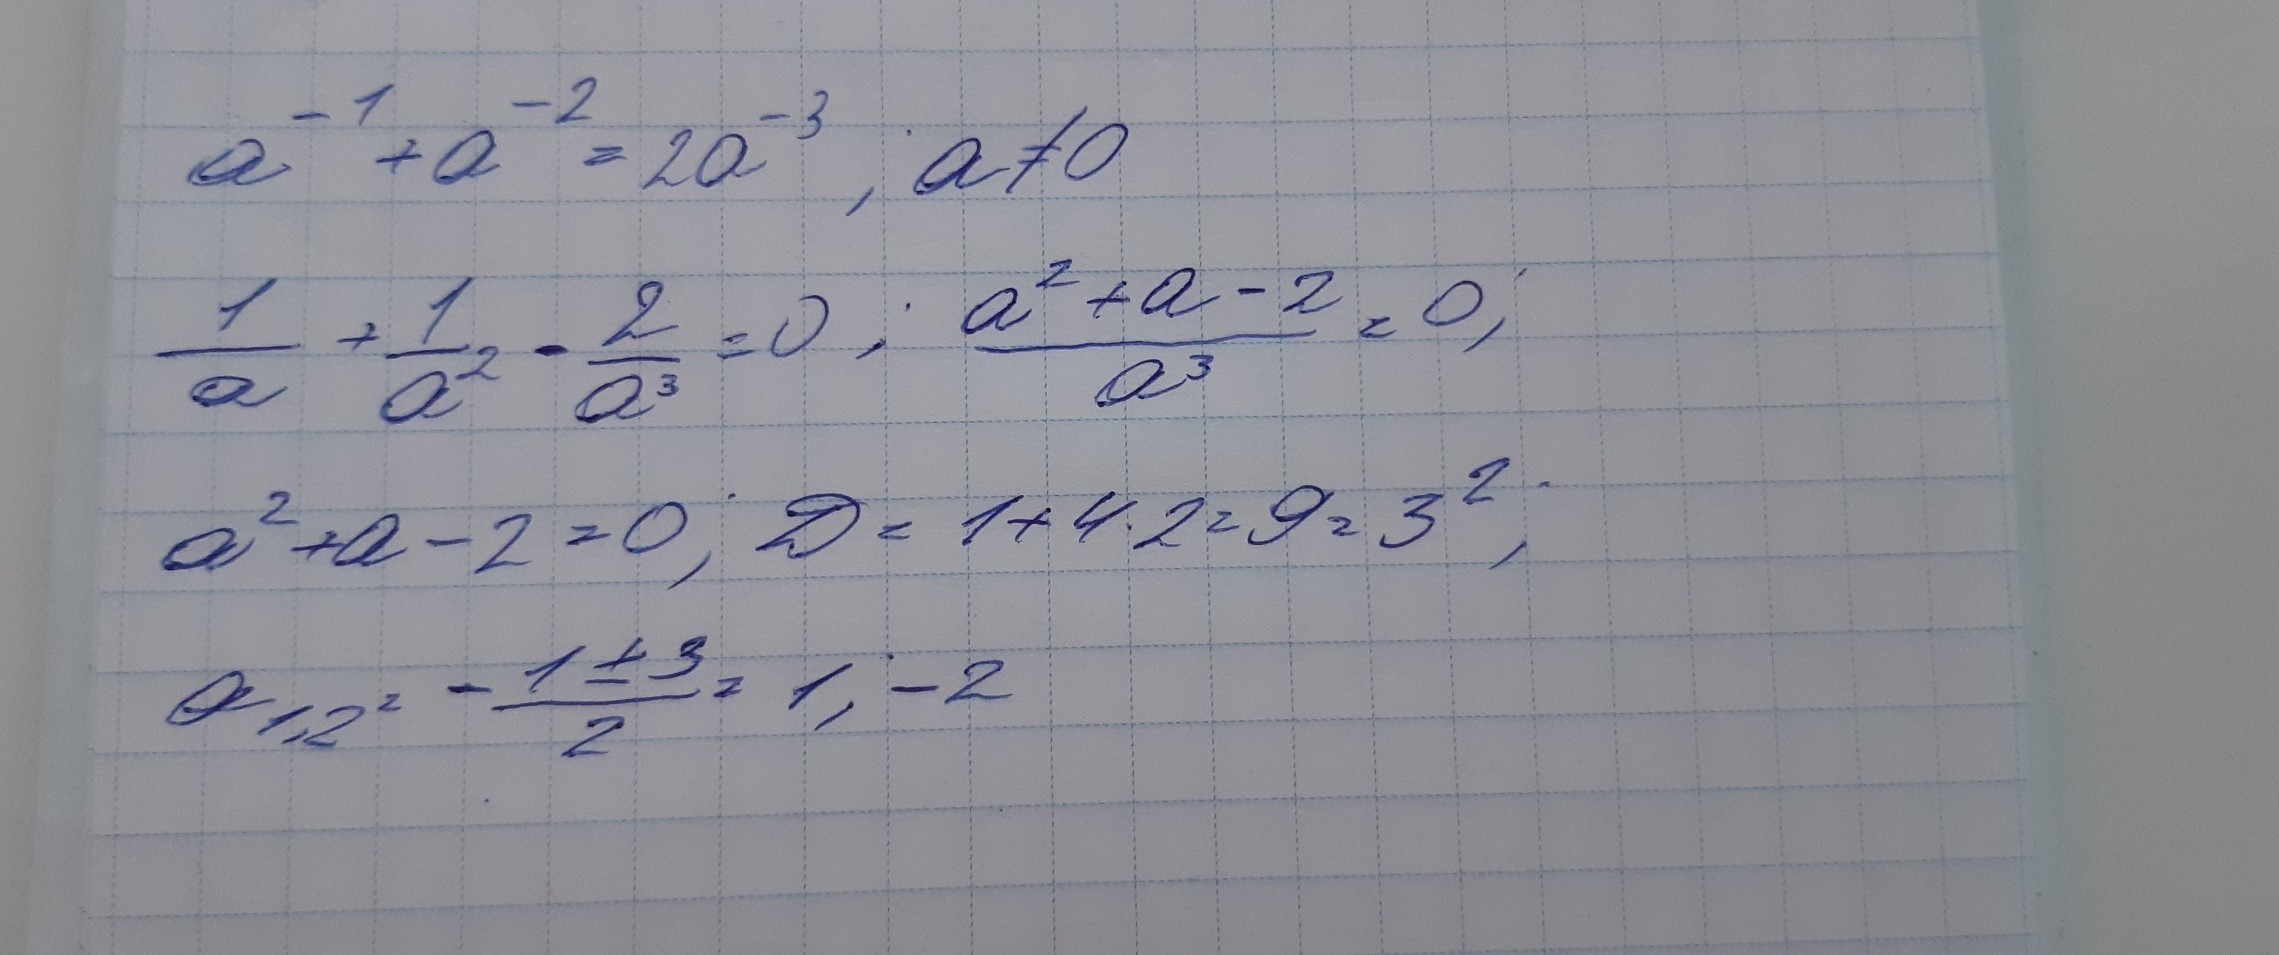 a⁻¹ + a⁻² = 2a⁻³; a ≠ 0
1/a + 1/a² - 2/a³ = 0; (a² + a - 2)/a³ = 0;
a² + a - 2 = 0; D = 1 + 4·2 = 9 = 3²;
a₁,₂ = -(1 ± 3)/2 = 1; -2